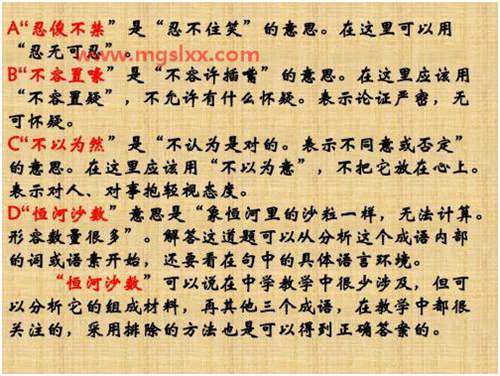 A“忍俊不禁”是“忍不住笑”的意思。在这里可以用
“忍无可忍”。
www.mgslxx.com
B“不容置喙”是“不容许插嘴”的意思。在这里应该用
“不容置疑”，不允许有什么怀疑。表示论证严密，无
可怀疑。
C“不以为然”是“不认为是对的。表示不同意或否定”
的意思。在这里应该用“不以为意”，不把它放在心上。
表示对人、对事抱轻视态度。
D“恒河沙数”意思是“象恒河里的沙粒一样，无法计算。
形容数量很多”。解答这道题可以从分析这个成语内部
的词或语素开始，还要看在句中的具体语言环境。
“恒河沙数”可以说在中学教学中很少涉及，但可
以分析它的组成材料，再其他三个成语，在教学中都很
关注的，采用排除的方法也是可以得到正确答案的。